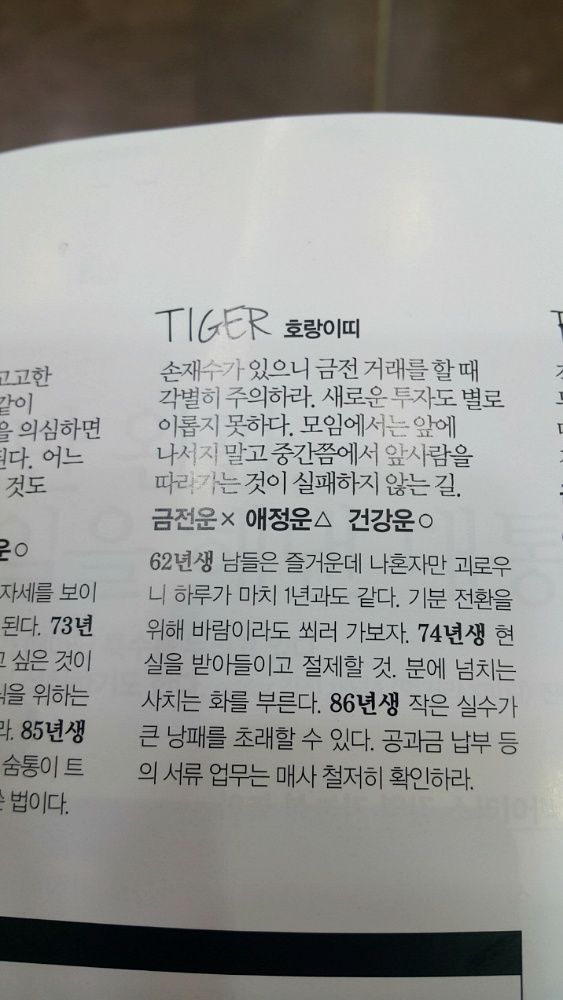 고고한
같이
을 의심하면
된다. 어느
것도
운○
자세를 보이
된다. 73년
고 싶은 것이
을 위하는
라. 85년생
숨통이 트
법이다.
TIGER 호랑이띠
손재수가 있으니 금전 거래를 할 때
각별히 주의하라. 새로운 투자도 별로
이롭지 못하다. 모임에서는 앞에
나서지 말고 중간쯤에서 앞사람을
따라가는 것이 실패하지 않는 길.
금전운× 애정운△ 건강운○
62년생 남들은 즐거운데 나혼자만 괴로우
니 하루가 마치 1년과도 같다. 기분 전환을
위해 바람이라도 쐬러 가보자. 74년생 현
실을 받아들이고 절제할 것. 분에 넘치는
사치는 화를 부른다. 86년생 작은 실수가
큰 낭패를 초래할 수 있다. 공과금 납부 등
의 서류 업무는 매사 철저히 확인하라.